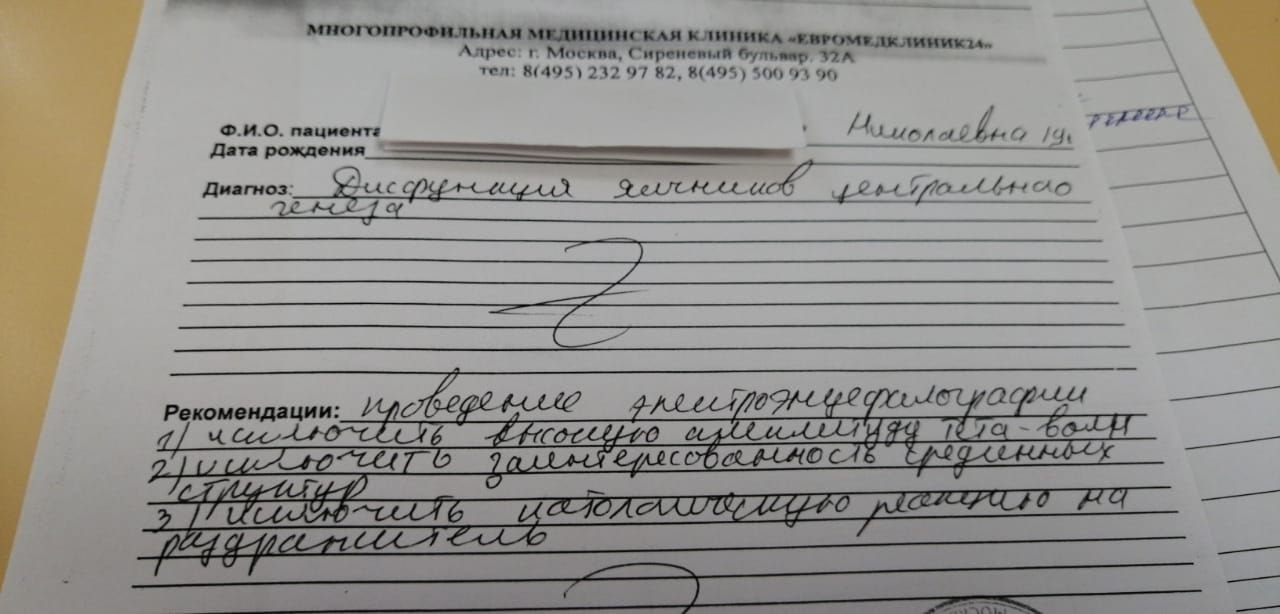 МНОГОПРОФИЛЬНАЯ МЕДИЦИНСКАЯ КЛИНИКА «ЕВРОМЕДКЛИНИК24»
Адрес: г. Москва, Сиреневый бульвар. 32А
тел: 8(495) 232 97 82, 8(495) 500 93 90
Ф.И.О. пациента Николаевна 19
Дата рождения
Диагноз: Дисфункция яичников центрального
генеза
Рекомендации: проведение электроэнцефалографии
1) исключить высокую амплитуду тета-волн
2) исключить заинтересованность срединных
структур
3) исключить патологическую реакцию на
раздражитель